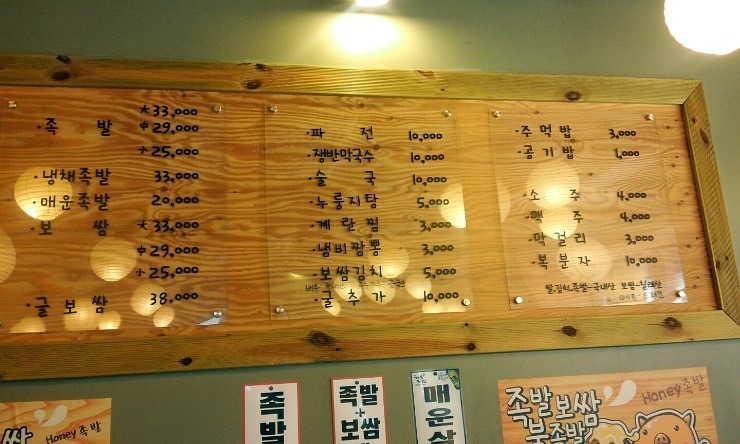 ·족 발 大 33,000
中 29,000
小 25,000
·냉채족발 33,000
·매운족발 20,000
·보 쌈 大 33,000
中 29,000
小 25,000
·굴보쌈 38,000
·파 전 10,000
·쟁반막국수 10,000
·술 국 10,000
·누룽지탕 5,000
·계란찜 3,000
·냄비짬뽕 3,000
·보쌈김치 5,000
·굴추가 10,000
·주먹밥 3,000
·공기밥 1,000
·소 주 4,000
·맥 주 4,000
·막걸리 3,000
·복분자 10,000
쌀,김치,족발-국내산
쌈
Honey족발
족발
족발
+
보쌈
매운
족발보쌈
Honey족발